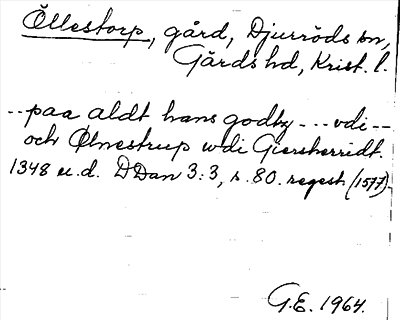 Öllestorp, gård, Djurröds sn,
Gärds hd, Krist. l.
--paa aldt hans godtz --- vdi --
och Ølnestrup wdi Giersherridt.
1348 u.d. DDan 3:3, s. 80. regest (1577).
G.E. 1964.